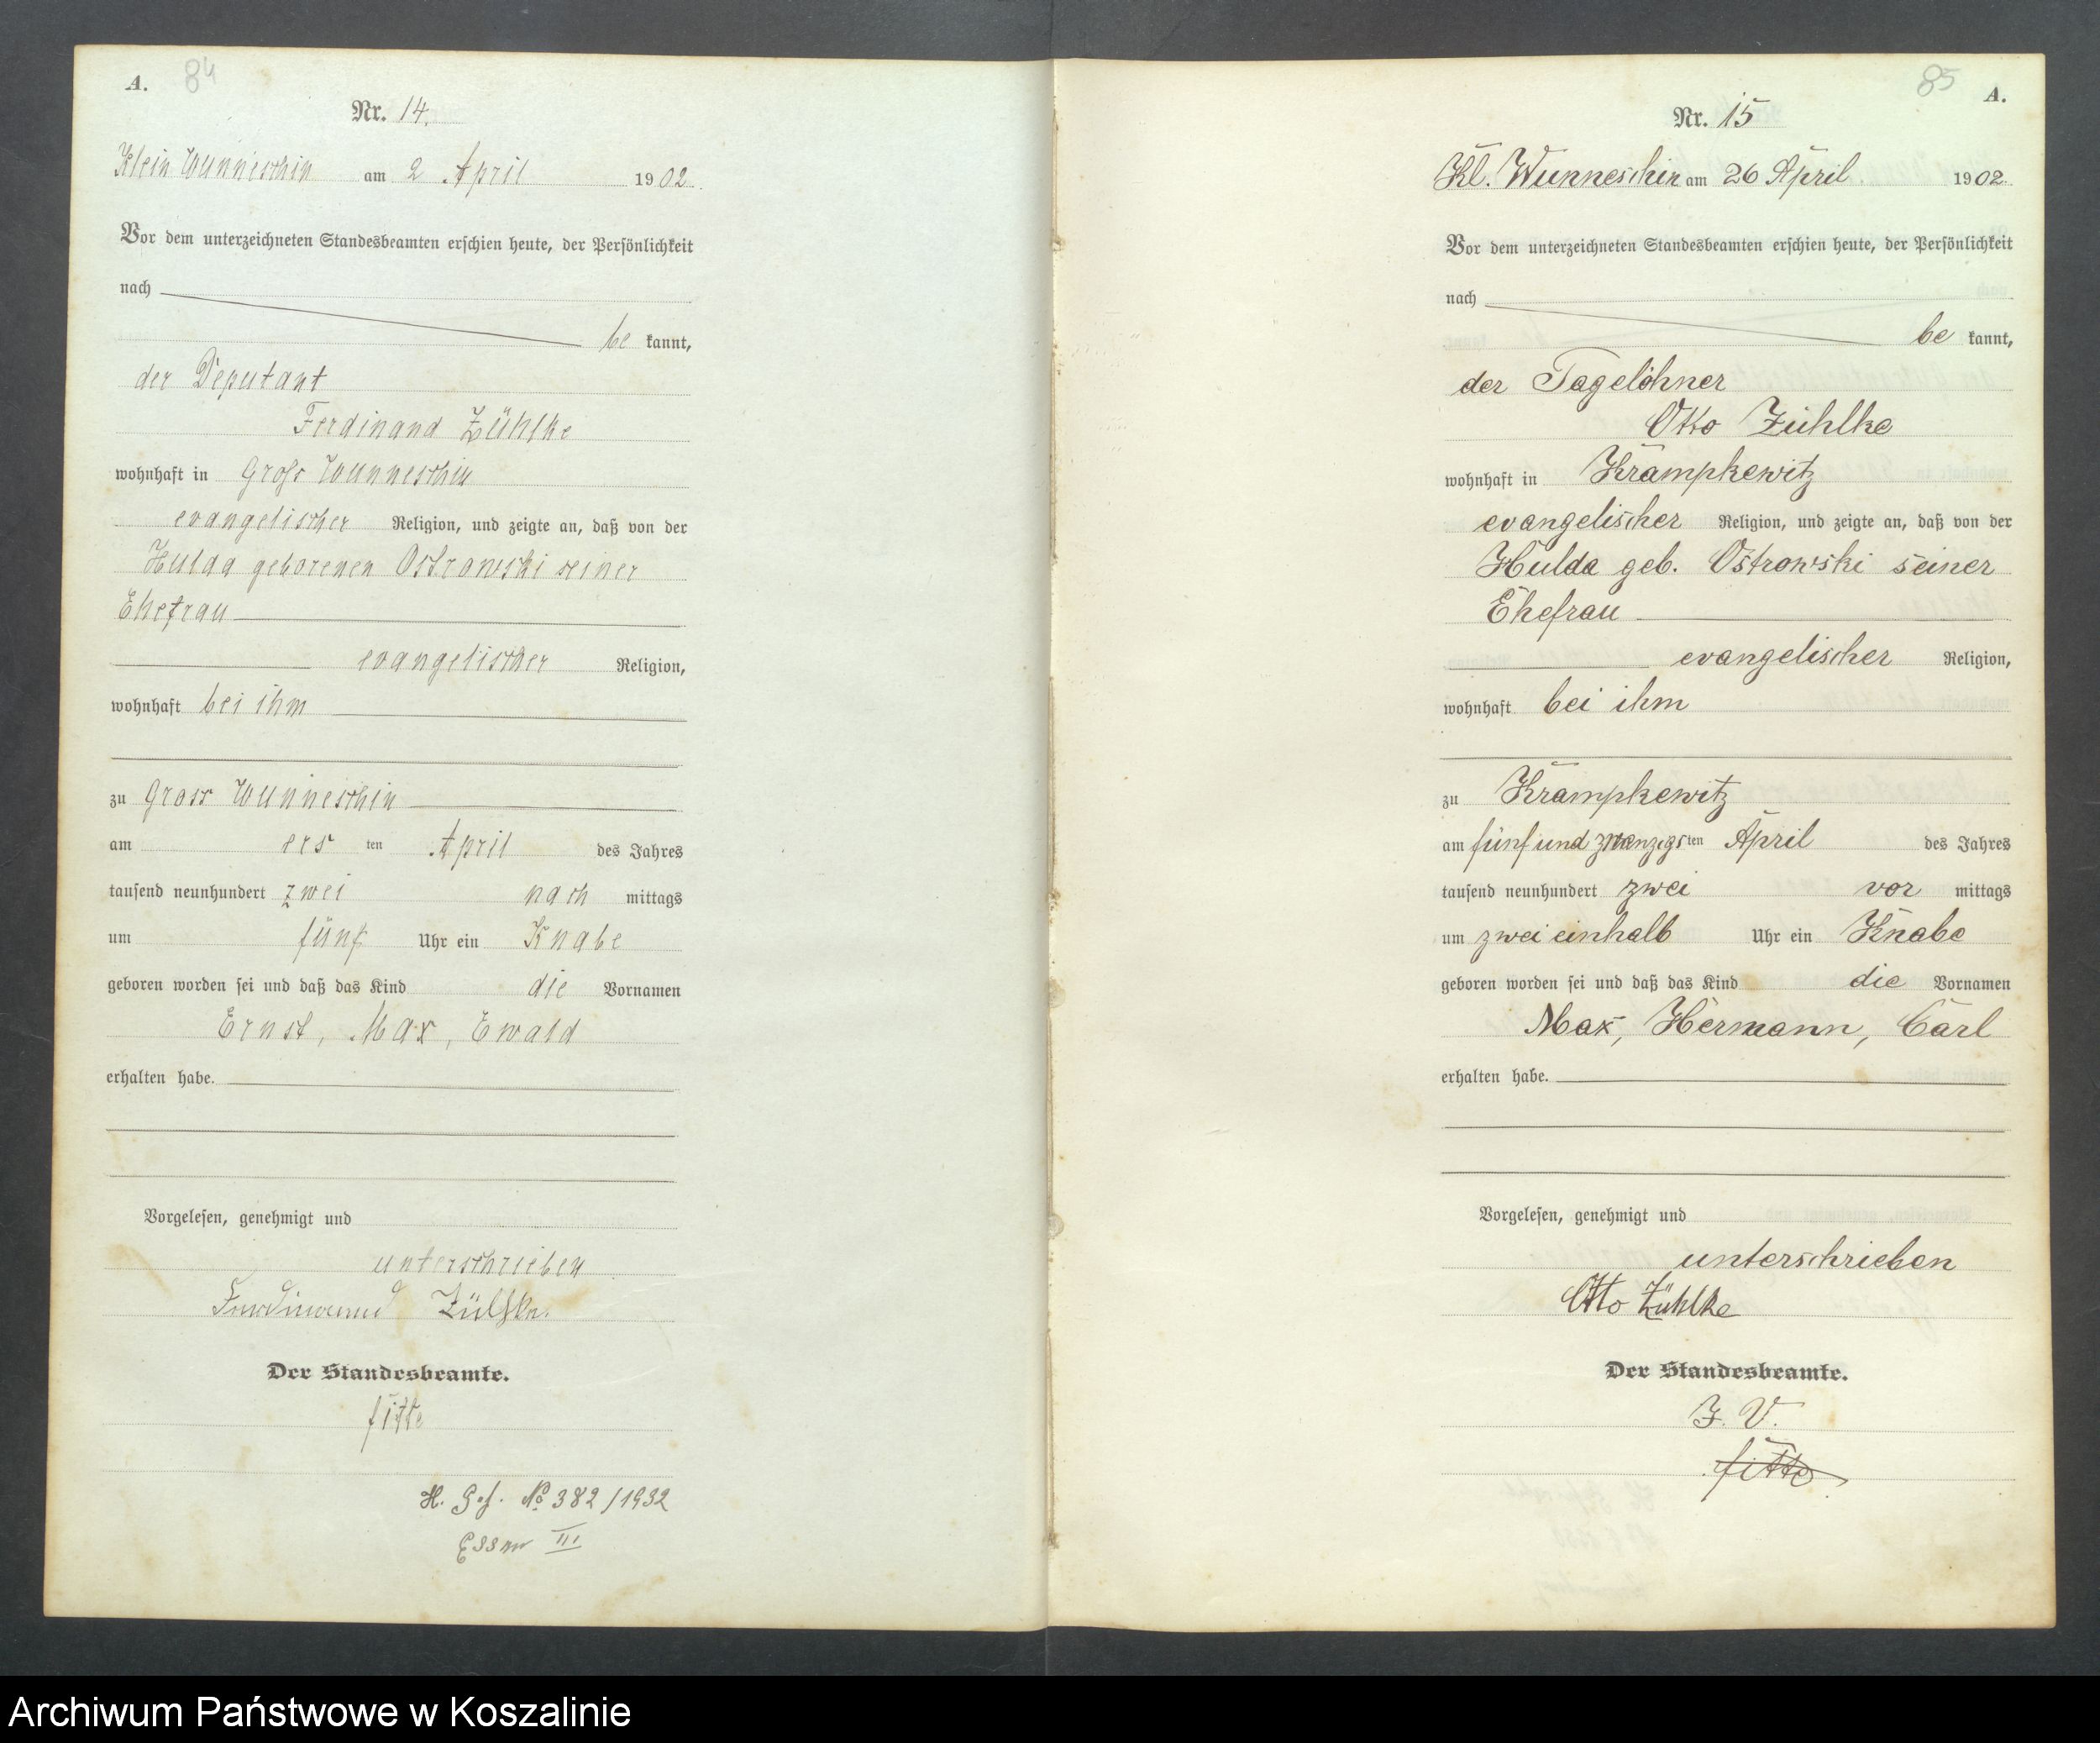 A. 84
Nr. 14.
Klein Wunneschin am 2 April 1902.
Vor dem unterzeichneten Standesbeamten erschien heute, der Persönlichkeit
nach
be kannt,
der Deputant
Ferdinand Zühlke
wohnhaft in Groß Wunneschin
evangelischer Religion, und zeigte an, daß von der
Hulda geborenen Ostrowski seiner
Ehefrau
evangelischer Religion,
wohnhaft bei ihm
zu Gross Wunneschin
am ers ten April des Jahres
tausend neunhundert zwei nach mittags
um fünf Uhr ein Knabe
geboren worden sei und daß das Kind die Vornamen
Ernst, Max, Ewald
erhalten habe.
Vorgelesen, genehmigt und
unterschrieben
Ferdinand Zühlke.
Der Standesbeamte.
fitte
H. No 382/1932
Essen III
85 A.
Nr. 15
Kl. Wunneschin am 26 April 1902.
Vor dem unterzeichneten Standesbeamten erschien heute, der Persönlichkeit
nach
be kannt,
der Tagelöhner
Otto Zühlke
wohnhaft in Krampkewitz
evangelischer Religion, und zeigte an, daß von der
Hulda geb. Ostrowski seiner
Ehefrau
evangelischer Religion,
wohnhaft bei ihm
zu Krampkewitz
am fünfundzwanzigsten April des Jahres
tausend neunhundert zwei vor mittags
um zwei einhalb Uhr ein Knabe
geboren worden sei und daß das Kind die Vornamen
Max, Hermann, Carl
erhalten habe.
Vorgelesen, genehmigt und
unterschrieben
Otto Zühlke
Der Standesbeamte.
J. V.
fitte
Archiwum Państwowe w Koszalinie